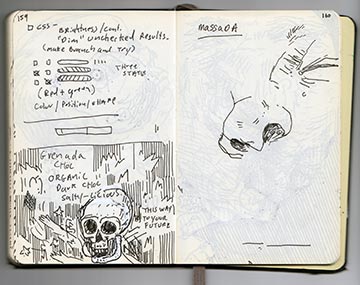 159
CSS -
Brightness/Cont.
"Dim" unchecked Results.
(make Branch and Try)
Three
States
(Red + green)
Color / Position / shape
Grenada
CHOC
ORGANIC
Dark CHOC
Salty-Licious.
THIS WAY
TO YOUR
FUTURE
160
MASSADA